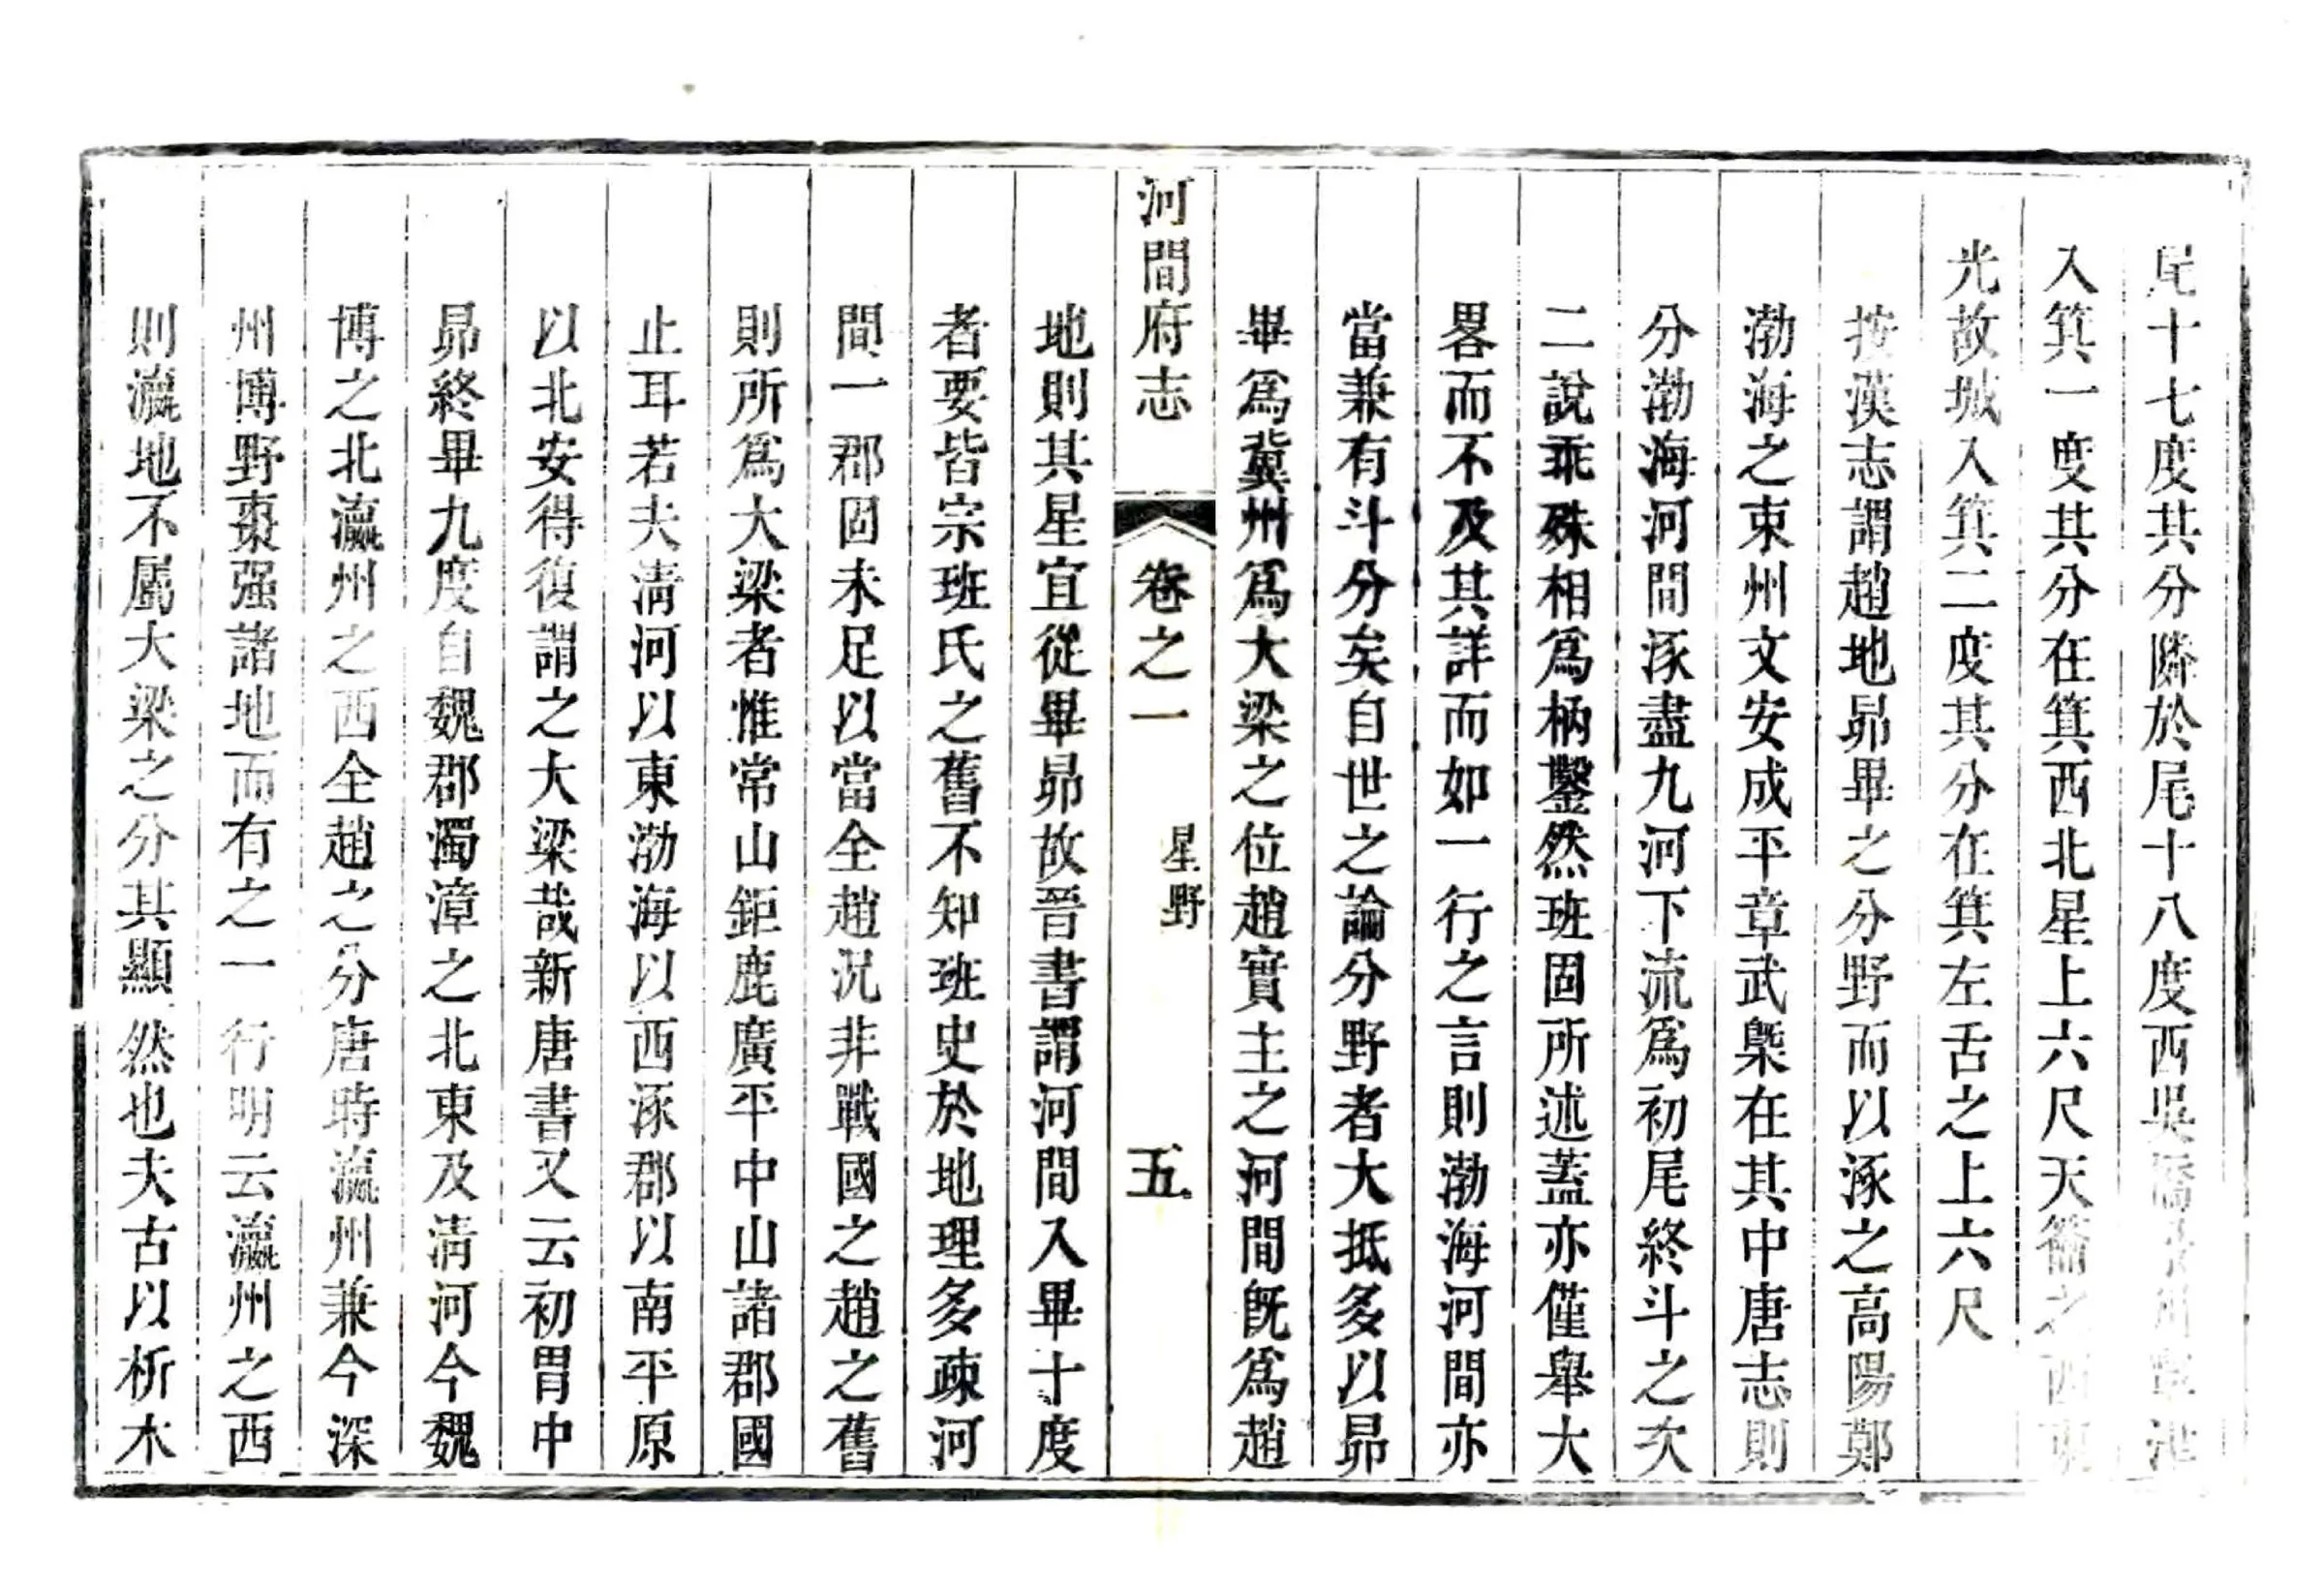 尾十七度其分隣於尾十八度西吳橋
入箕一度其分在箕西北星上六尺天籥之西東
光故城入箕二度其分在箕左舌之上六尺
按漢志謂趙地昴畢之分野而以涿之高陽鄭
渤海之東州文安成平章武槩在其中唐志則
分渤海河間涿盡九河下流爲初尾終斗之次
二說乖殊相爲柄鑿然班固所述蓋亦僅舉大
畧而不及其詳而如一行之言則渤海河間亦
當兼有斗分矣自世之論分野者大抵多以昴
畢爲冀州爲大梁之位趙實主之河間旣爲趙
河間府志 卷之一 星野 五
地則其星宜從畢昴故晉書謂河間入畢十度
者要皆宗班氏之舊不知班史於地理多疎河
間一郡固未足以當全趙況非戰國之趙之舊
則所爲大梁者惟常山鉅鹿廣平中山諸郡國
止耳若夫淸河以東渤海以西涿郡以南平原
以北安得復謂之大梁哉新唐書又云初胃中
昴終畢九度自魏郡濁漳之北東及淸河今魏
博之北瀛州之西全趙之分唐時瀛州兼今深
州博野棗强諸地而有之一行明云瀛州之西
則瀛地不屬大梁之分其顯然也夫古以析木